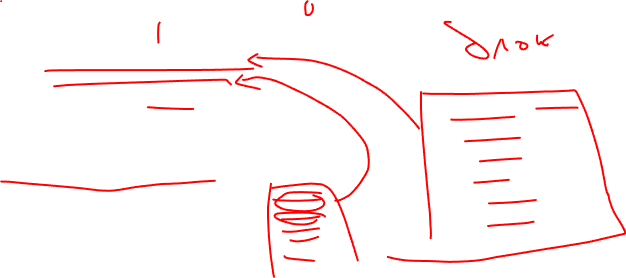 1 0 блок